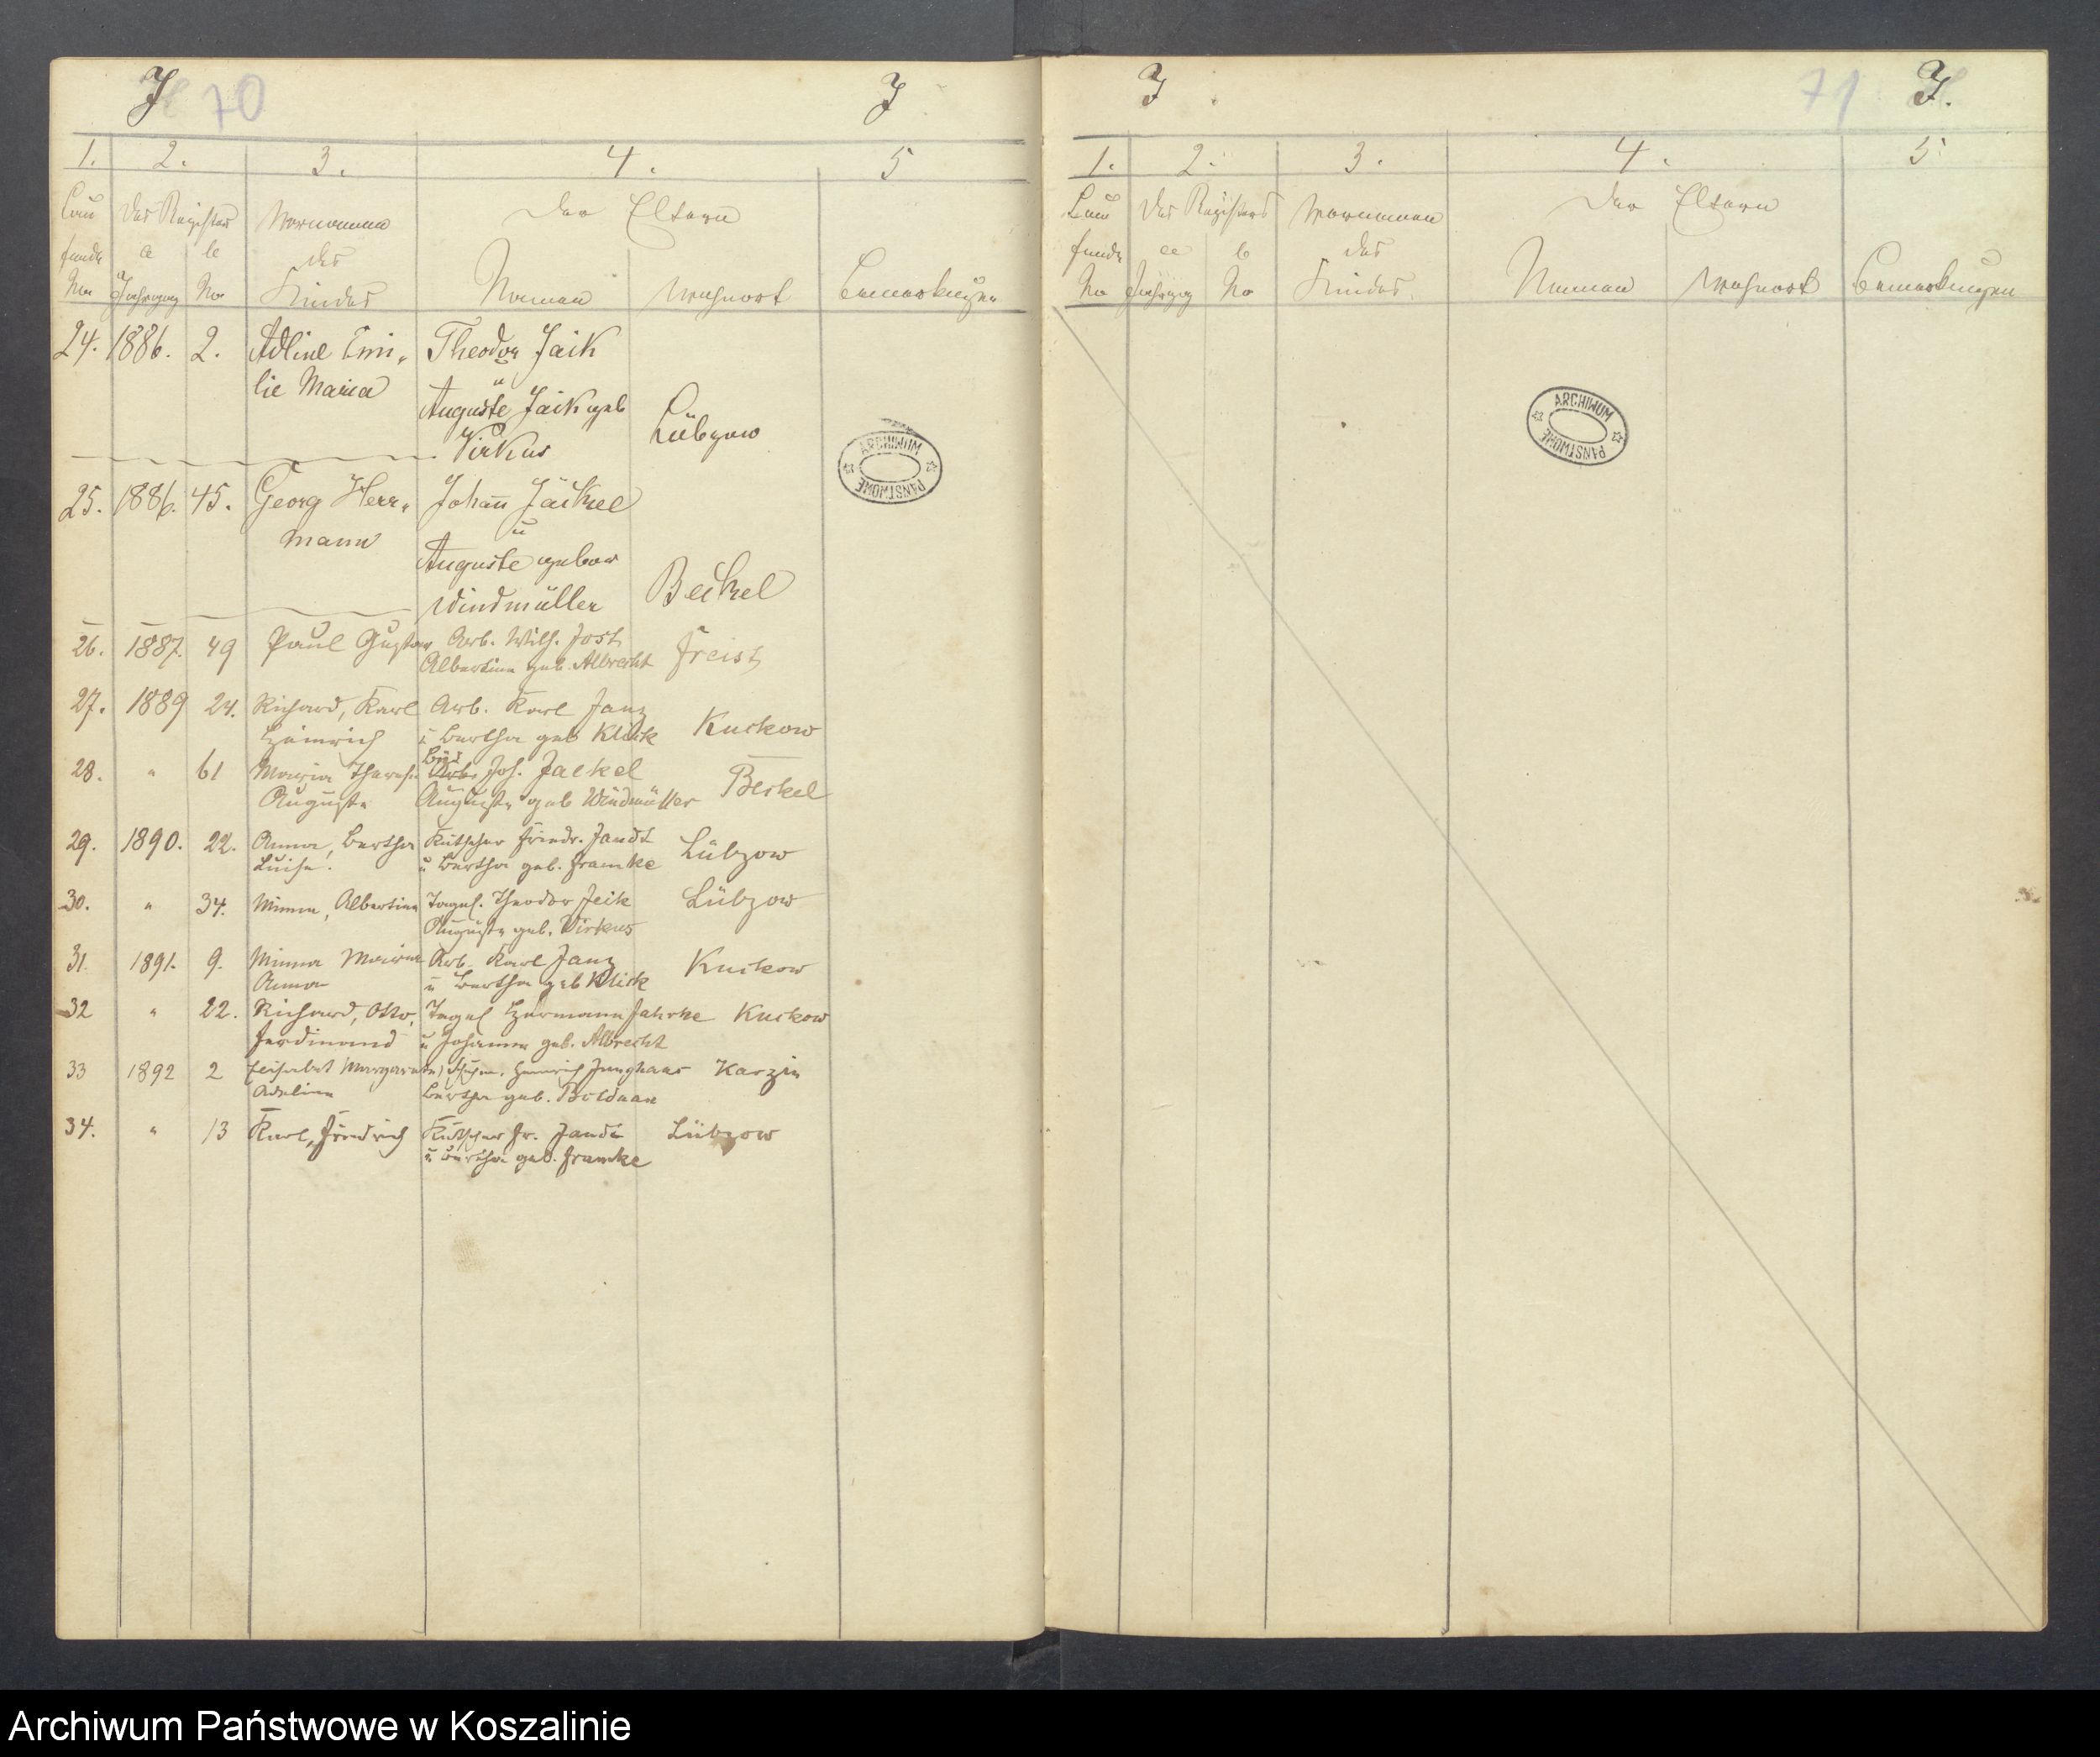 J 70 J
1. 2. 3. 4. 5
Lau Des Registers Vornamen Der Eltern
fende a b des
No Jahrgang No Kindes Namen Wohnort Bemerkungen
24. 1886. 2. Adline Emi-
lie Maria
Theodor Jaik
u
Auguste Jaik geb
Virkus
Lübzow
25. 1886. 45. Georg Herr-
mann
Johann Jäikel
u
Auguste gebor
Windmüller
Beckel
26. 1887. 49 Paul Gustav Arb. Wilh. Jost Freist
Albertine geb. Albrecht
27. 1889 24. Richard, Karl Arb. Karl Janz Kuckow
Heinrich u Bertha geb Klick
28. " 61 Maria Therese Joh. Jaekel Beckel
Auguste Auguste geb Windmüller
29. 1890. 22. Anna, Bertha Kutscher Friedr. Jandt Lübzow
Luise. u Bertha geb. Framke
30. " 34. Minna, Albertine Tagel. Theodor Jeik Lübzow
Auguste geb. Virkus
31. 1891. 9. Minna Maria Arb. Karl Janz Kuckow
Anna u Bertha geb Klick
32 " 22. Richard, Otto, Tagel Hermann Jahnke Kuckow
Ferdinand u Johanna geb. Albrecht
33 1892 2 Elisabet Margarete Heinrich Junghans Karzin
Adeline Bertha geb.
34. " 13 Karl, Friedrich Kutscher Fr. Jandt Lübzow
u Bertha geb. Framke
J 71 J.
1. 2. 3. 4. 5.
Lau Des Registers Vornamen Der Eltern
fende a b des
No Jahrgang No Kindes. Namen Wohnort Bemerkungen
ARCHIWUM
PAŃSTWOWE
ARCHIWUM
PAŃSTWOWE
Archiwum Państwowe w Koszalinie